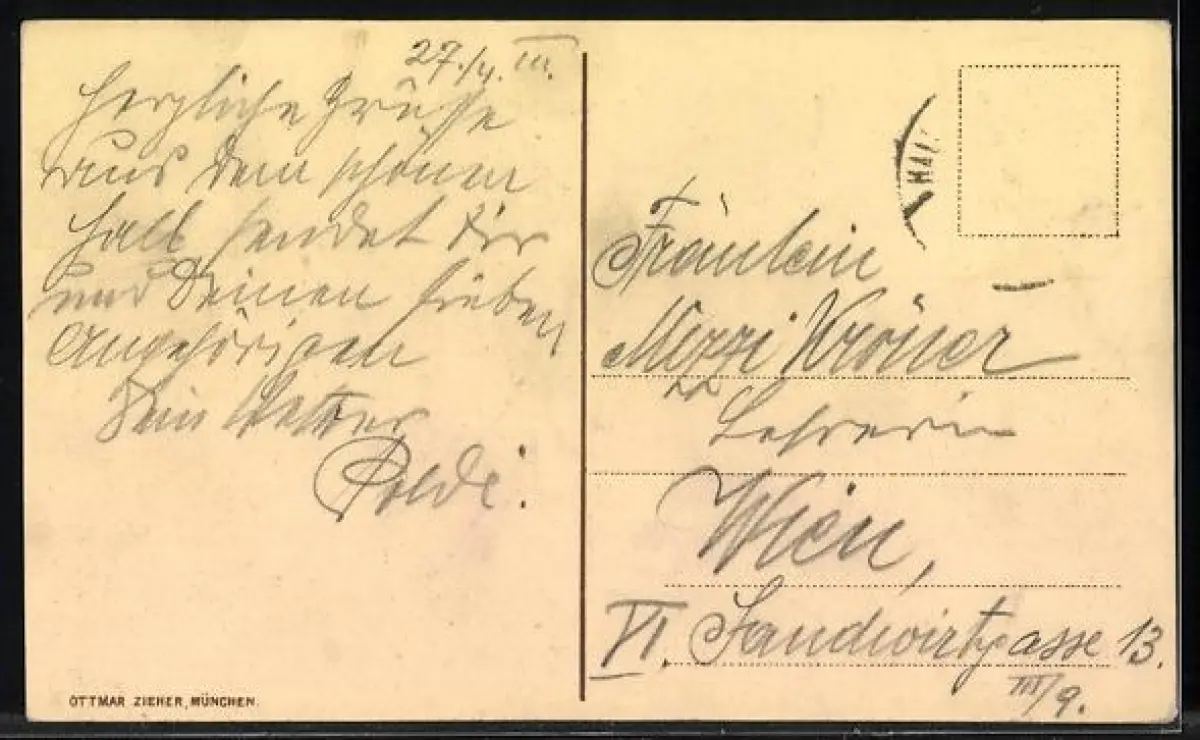 27./4. III.
Herzliche Grüße
aus dem schönen
Hall sendet Dir
und Deinen lieben
Angehörigen
Dein Vetter
Poldi.
HAL
Fräulein
Mizzi Kröner
Lehrerin
Wien,
VI. Sandwirtgasse 13.
III/9.
OTTMAR ZIEHER, MÜNCHEN.